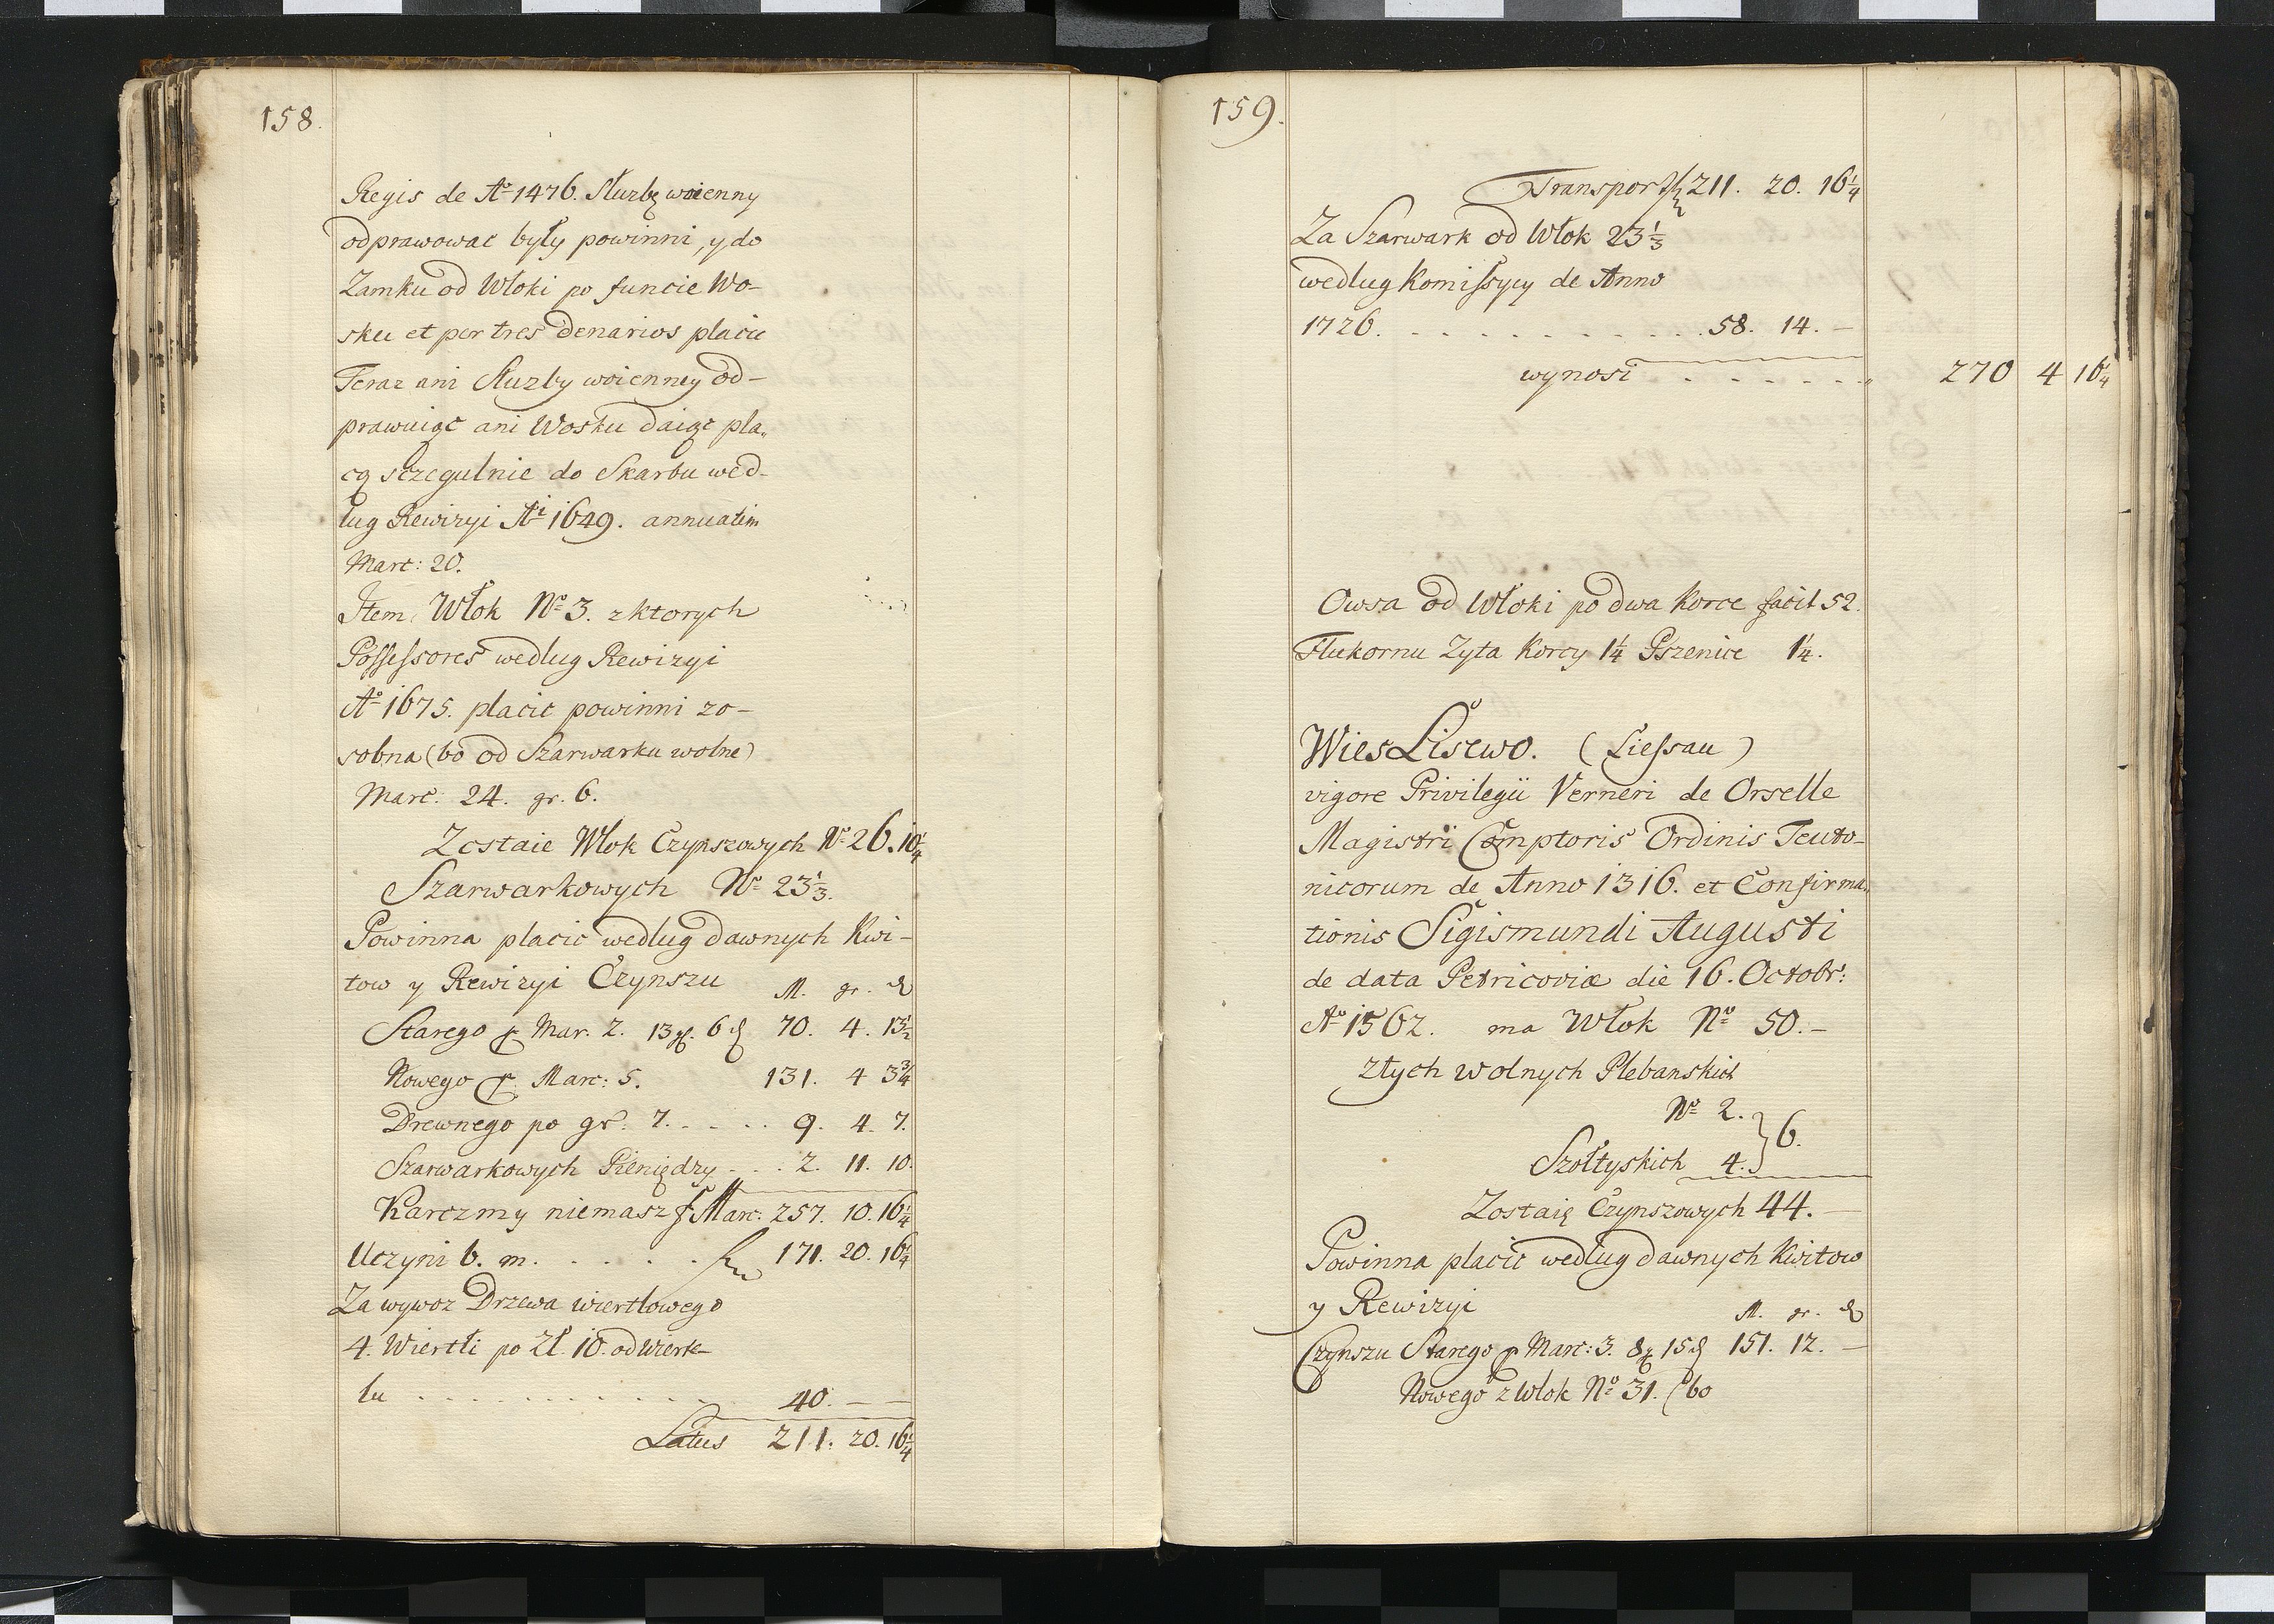 158.
Regis de Aº 1476. Słuzbę woienny
odprawowac były powinni, y do
Zamku od Włoki po funcie Wo-
sku et per tres denarios placic
Teraz ani Sluzby woienney od-
prawuiąc ani Wosku daiąc pla-
cą sczegulnie do Skarbu wed-
ług Rewizyi Aⁱ 1649. annuatim
Marc: 20.
Item Włok Nº 3. z ktorych
Possessores według Rewizyi
Aº 1675. placic powinni zo-
sobna (bo od Szarwarku wolne)
Marc. 24. gr. 6.
Zostaie Włok Czynszowych Nº 26. 10¼
Szarwarkowych Nº 23⅓.
Powinna placic według dawnych Kwi-
tow y Rewizyi Czynszu M. gr. ₰
Starego p Mar. 2. 13 gr. 6 ₰ 70. 4. 13½
Nowego p Marc: 5. 131. 4 3¾
Drewnego po gr. 7. . . . . . 9. 4. 7.
Szarwarkowych Pieniędzy . . . 2. 11. 10.
Karczmy niemasz f Marc: 257. 10. 16¼
Uczyni b. m. . . . . . 171. 20. 16¼
Za wywoz Drzewa wiertlowego
4. Wiertli po Zł. 10. od Wierte-
lu . . . . . . . . . . . 40. — —
Latus 211. 20. 16¼
159.
Transport 211. 20. 16¼
Za Szarwark od Włok 23⅓
według Komissyy de Anno
1726. . . . . . . . . . . 58. 14. —
wynosi . . . . . . . 270 4 16¼
Owsa od Włoki po dwa Korce facit 52.
Flukornu Zyta Korcy 1¼ Pszenice 1¼.
Wies Lisewo. (Liessau)
vigore Privilegii Verneri de Orselle
Magistri Comptoris Ordinis Teuto-
nicorum de Anno 1316. et Confirma-
tionis Sigismundi Augusti
de data Petricoviæ die 16. Octobr:
Aº 1562. ma Włok Nº 50. —
z tych wolnych Plebanskich
Nº 2. } 6.
Szołtyskich 4.
Zostaię Czynszowych 44. —
Powinna placic według dawnych Kwitow
y Rewizyi M. gr. ₰
Czynszu Starego p Marc: 3. 8 gr 15 ₰ 151. 12. —
Nowego z Włok Nº 31. (bo